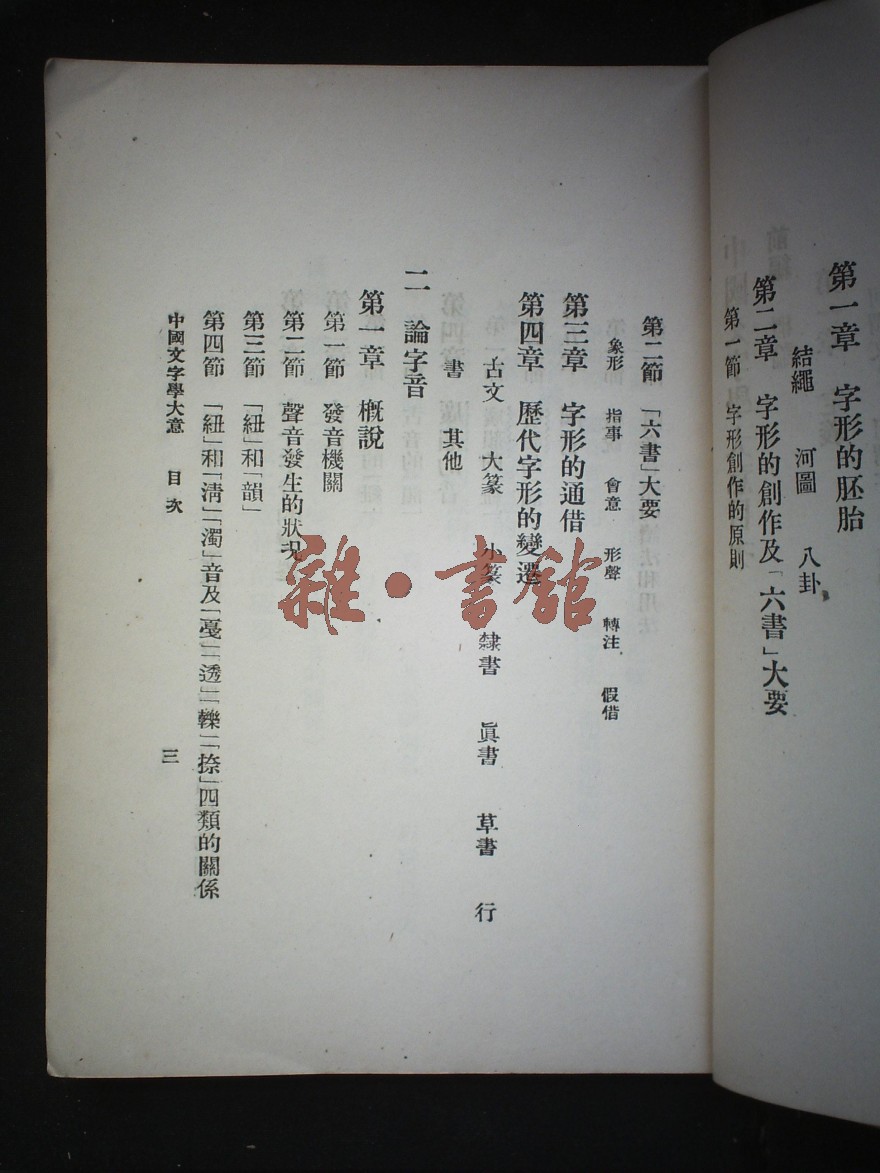 第一章　字形的胚胎
結繩　河圖　八卦
第二章　字形的創作及「六書」大要
第一節　字形創作的原則
第二節　「六書」大要
象形　指事　會意　形聲　轉注　假借
第三章　字形的通借
第四章　歷代字形的變遷
古文　大篆　小篆　隸書　眞書　草書　行
書　其他
二　論字音
第一章　槪說
第一節　發音機關
第二節　聲音發生的狀況
第三節　「紐」和「韻」
第四節　「紐」和「淸」「濁」音及「戞」「透」「轢」「捺」四類的關係
中國文字學大意　目次　三
雜·書館